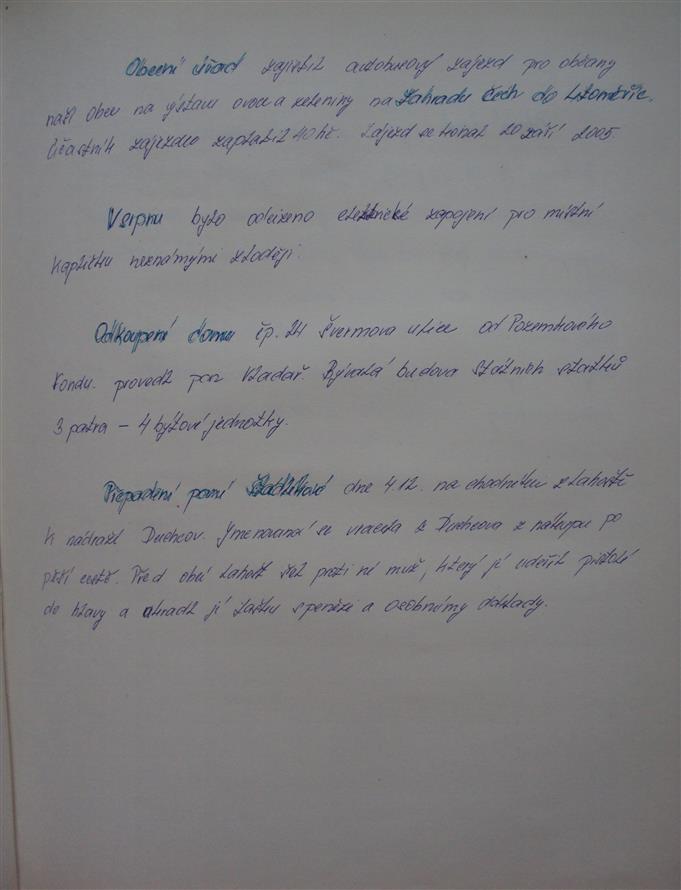 Obecní úřad zajistil autobusový zájezd pro občany
naší obce na výstavu ovoce a zeleniny na Zahradu Čech do Litoměřic.
Účastník zájezdu zaplatil 40 kč. Zájezd se konal 20 září 2005.
V srpnu bylo odcizeno elektrické zapojení pro místní
kapličku neznámými zloději.
Odkoupení domu čp. 24 Švermova ulice od Pozemkového
Fondu. provedl pan Vladař. Bývalá budova Státních statků
3 patra – 4 bytové jednotky.
Přepadení paní dne 4.12. na chodníku z Lahoště
k nádraží Duchcov. Jmenovaná se vracela z Duchcova z nákupu po
pěší cestě. Před obcí Lahošť šel proti ní muž, který jí udeřil pistolí
do hlavy a ukradl jí tašku s penězi a osobnímy doklady.